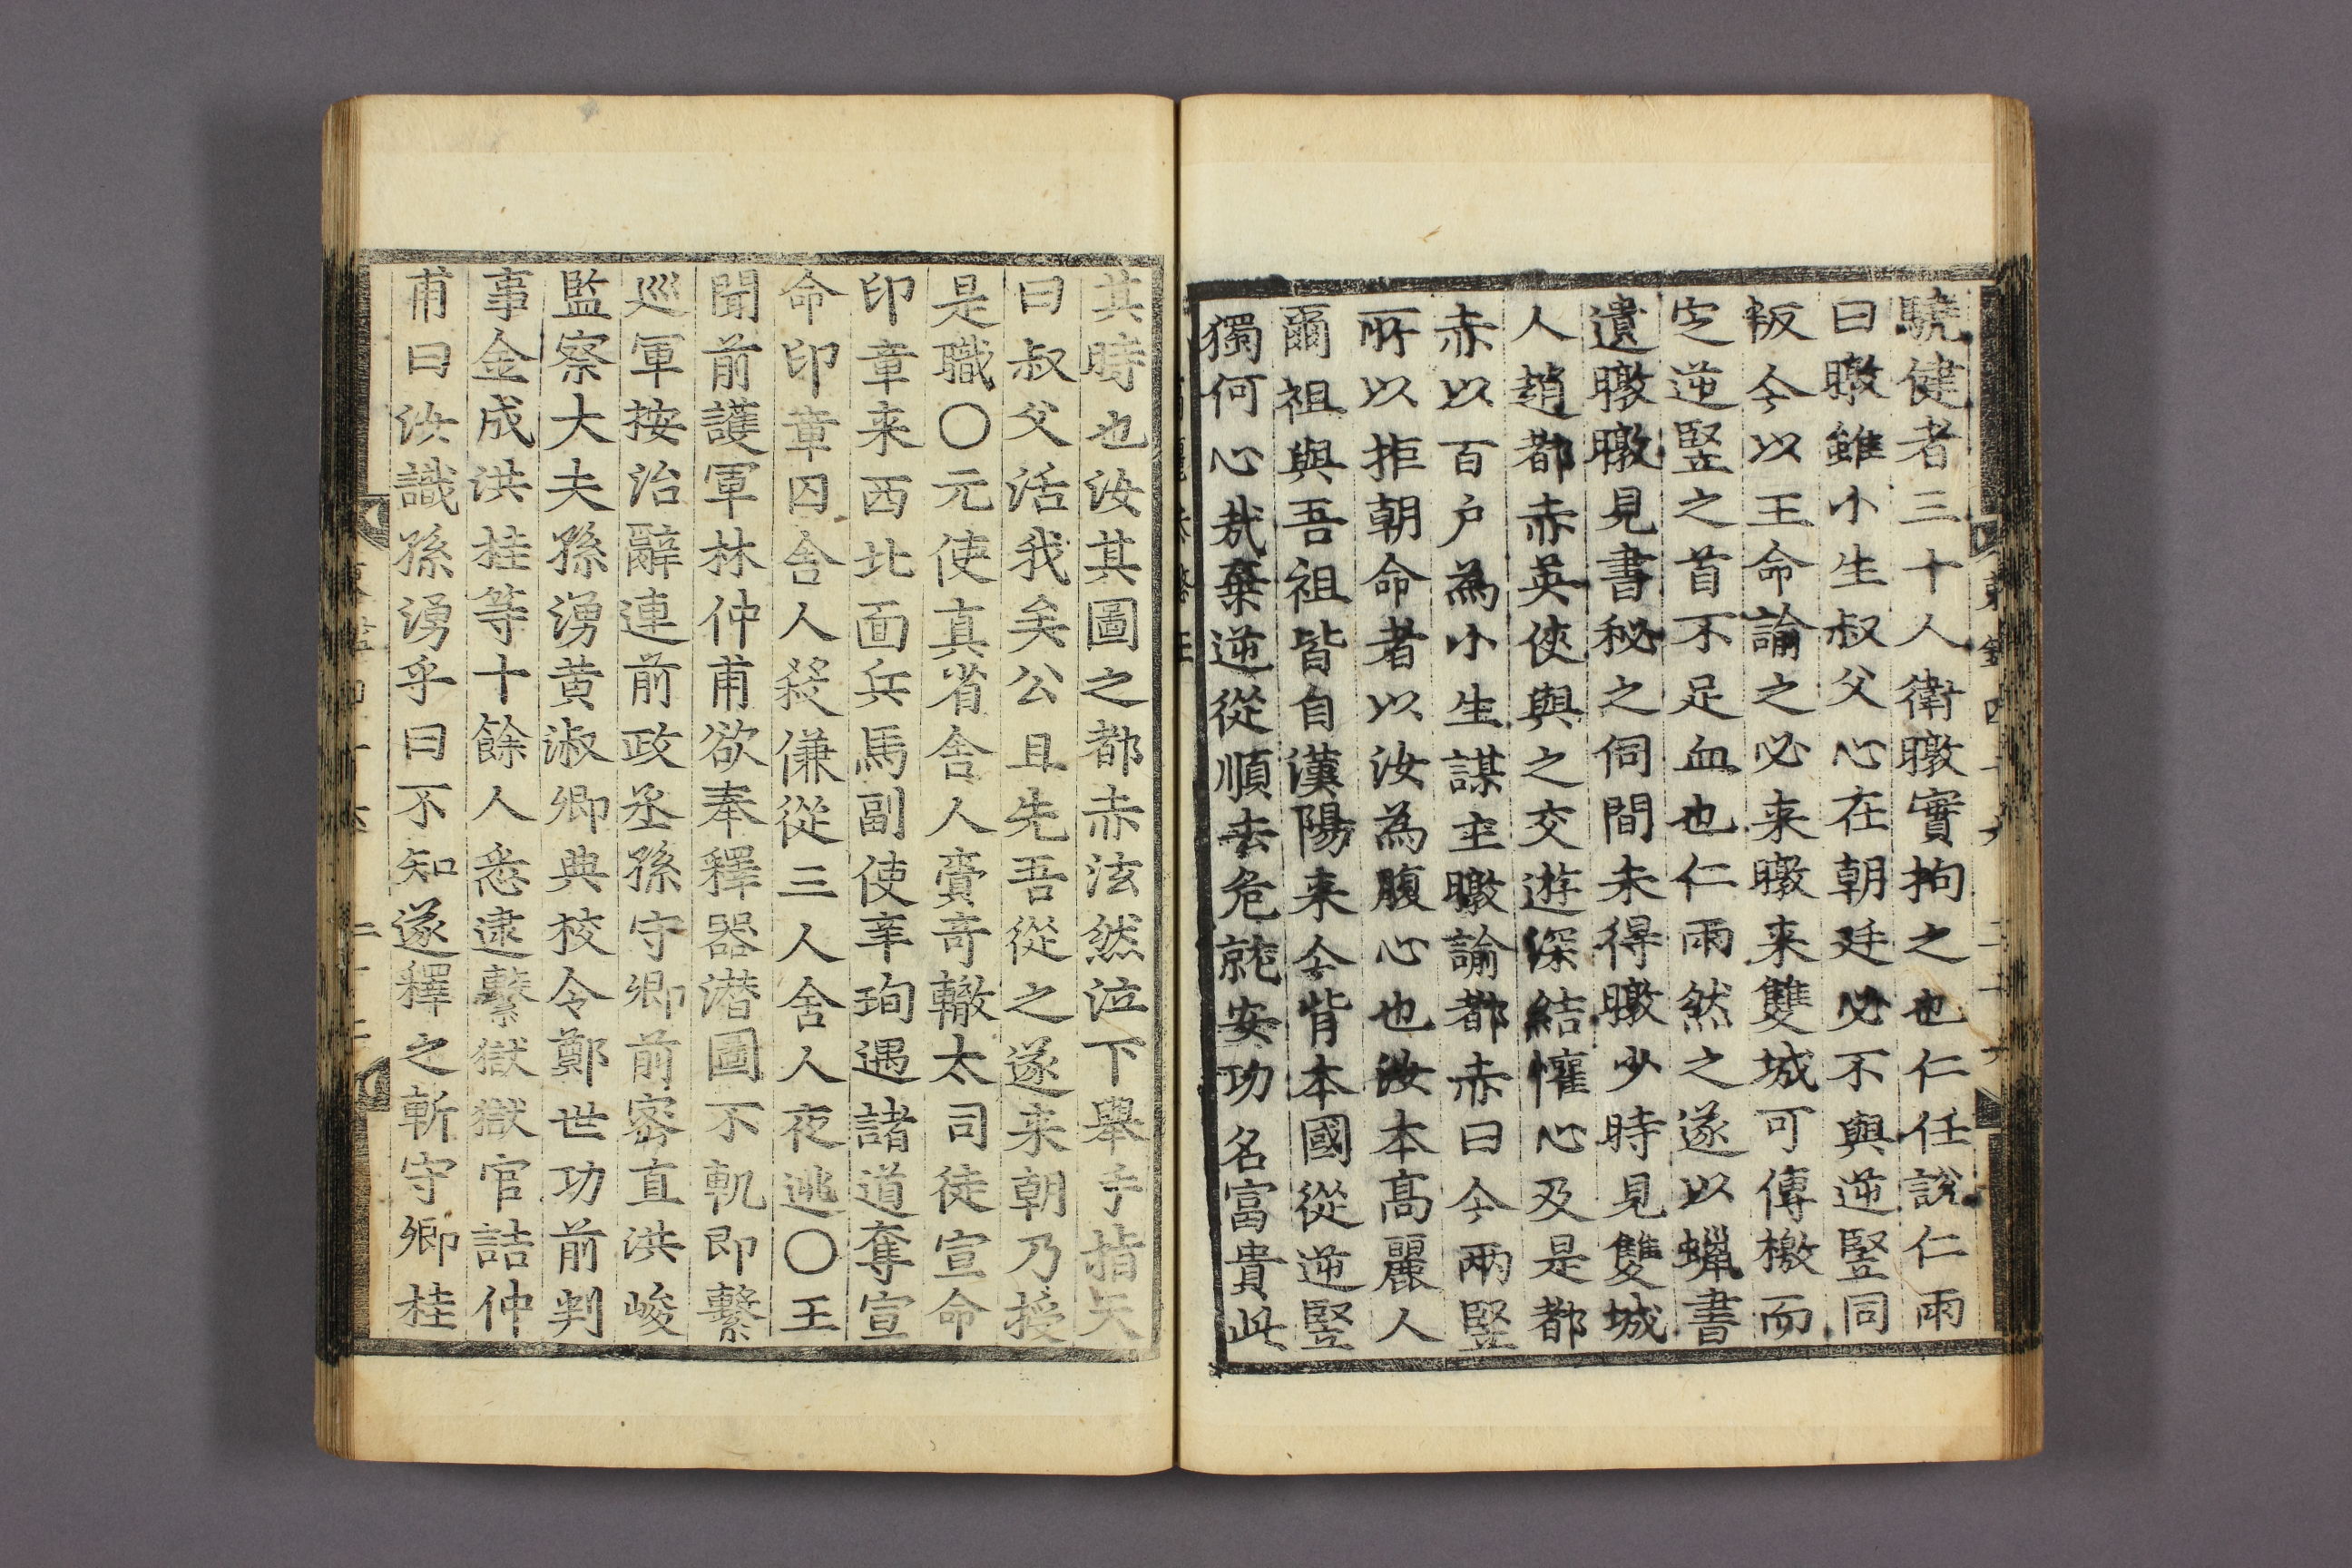 驍健者三十人衛暾實拘之也仁任說仁雨
曰暾雖小生叔父心在朝廷必不與逆竪同
叛今以王命諭之必来暾来雙城可傳檄而
㝎逆竪之首不足血也仁雨然之遂以蠟書
遺暾暾見書秘之伺間未得暾少時見雙城
人趙都赤英俠與之交遊深結懽心及是都
赤以百户為小生謀主暾諭都赤曰今兩竪
所以拒朝命者以汝為腹心也汝本高麗人
爾祖與吾祖皆自漢陽来今背本國從逆竪
獨何心㦲棄逆從順去危就安功名富貴此
其時也汝其圖之都赤泫然泣下舉手指天
曰叔父活我矣公且先吾從之遂来朝乃授
是職〇元使直省舎人賫奇轍太司徒宣命
印章来西北面兵馬副使辛珣遇諸道奪宣
命印章囚舎人殺傔從三人舎人夜逃〇王
聞前護軍林仲甫欲奉釋器潜圖不軌即繫
巡軍按治辭連前政丞孫守卿前密直洪峻
監察大夫孫湧黄淑卿典校令鄭世功前判
事金成洪桂等十餘人悉逮繫獄獄官詰仲
甫曰汝識孫湧乎曰不知遂釋之斬守卿桂